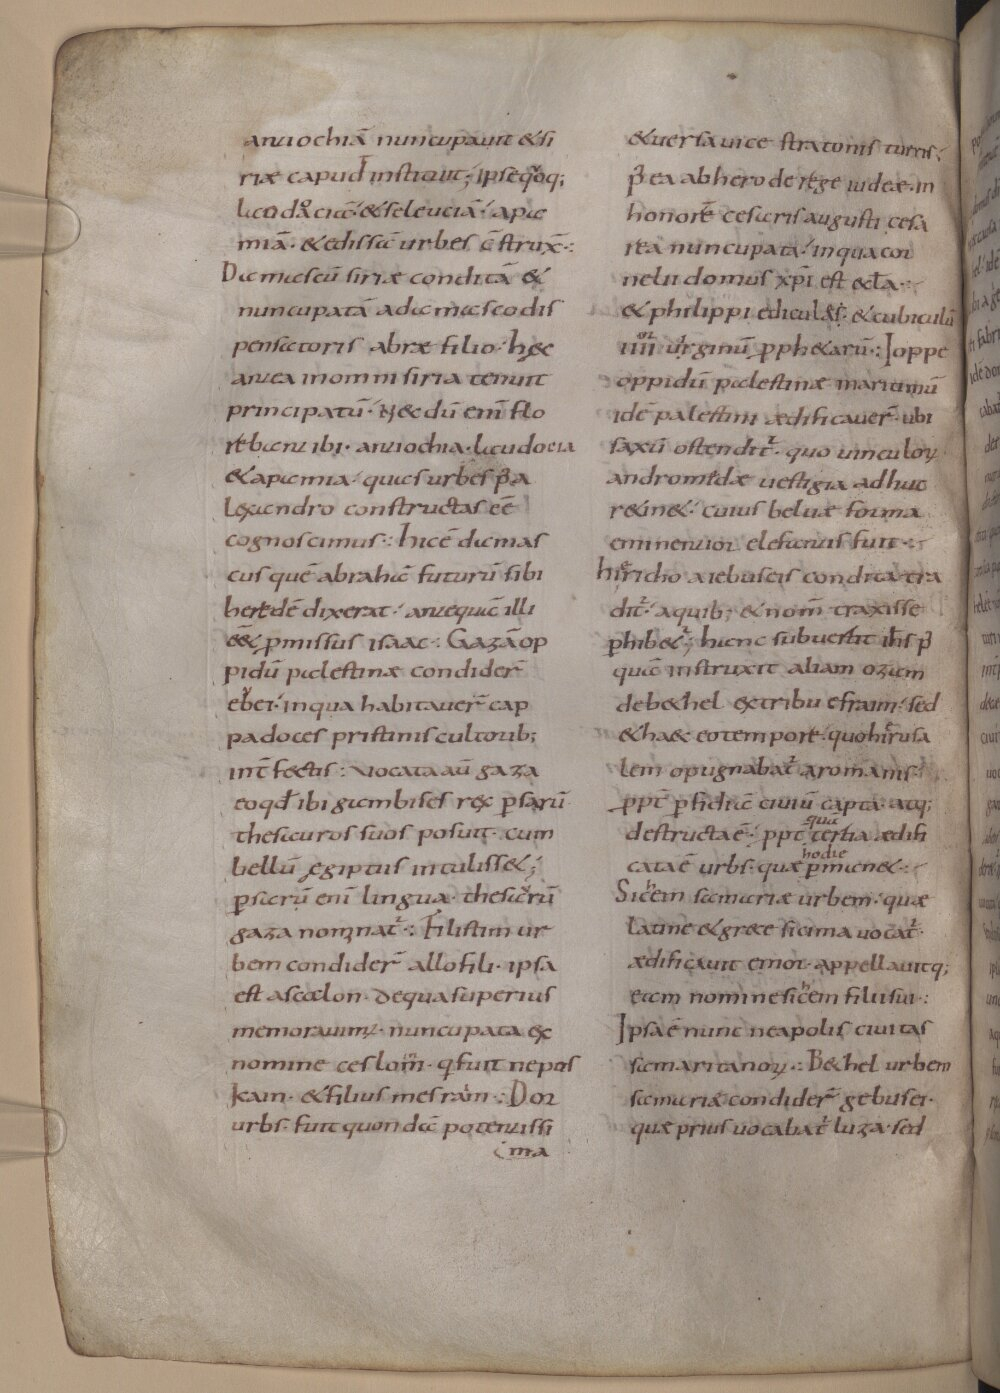 antiochiā nuncupauit & si
riæ capud instituit; ipse quoq;
laudaciā & seleuciā apa
miā & edissā urbes c̄strux̄
Damascū siriæ conditā &
nuncupatā a damasco dis
pensatoris abræ filio hęc
antea in omni siria tenuit
principatū Necdū eni flo
rebant ibi antiochia laudocia
& apamia quas urbes p̄ a
lexandro constructas eē
cognoscimus hic ē damas
cus quē abrahā futurū sibi
heredē dixerat antequā illi
eē& pmissus isaac Gazā op
pidū palestinæ condider̄
ebei in qua habitauer̄ cap
padoces pristinis cultorib;
int̄fectis uocata aū gaza
eo qđ ibi gambises rex psarū
thesauros suos posuit cum
bellū egiptiis intuliss&;
psarū eni lingua thesaurū
gaza nominat̄ Filistim ur
bem condider̄ allofili ipsa
est ascalon de qua superius
memorauim; nuncupata ex
nomine ceslom q fuit nepos
kam & filius mesraim Dor
urbs fuit quondā potentissi
ma
& uersa uice stratonis turris
p̄ ea ab herode rege iudeæ in
honorē cesaris augusti cesa
rea nuncupata in qua cor
nelii domus xp̄i est ecl̄a
& philippi ediculas & cubiculū
iiii uirginū pph&arū Ioppe
oppidū palestinæ maritimū
idē palestini ædificauer̄ ubi
saxū ostendit̄ quo uinculoꝝ
andromedæ uestigia adhuc
r&in& cuius beluæ forma
eminentior elefantis fuit
hiericho a iebuseis condita tra
dit̄ a quib; & nom̄ traxisse
phib& hanc subuertit ih̄s p̄
quā instruxit aliam ozam
de b&hel ex tribu efraim sed
& ha&c eo tempore quo hierusa
lem opugnabat̄ a romanis
ppt̄ pfidiā ciuiū capta atq;
destructa ē ppt quā tertia ædifi
cata ē urbs quæ hodie pman&
Sichem samariæ urbem quæ
latine & grece sicima uocat̄
ædificauit emor appellauitq;
eam nomine sichem filii sui
Ipsa ē nunc neapolis ciuitas
samaritanoꝝ B&hel urbem
samariæ condider̄ gebusei
quæ prius uocabat̄ luza sed